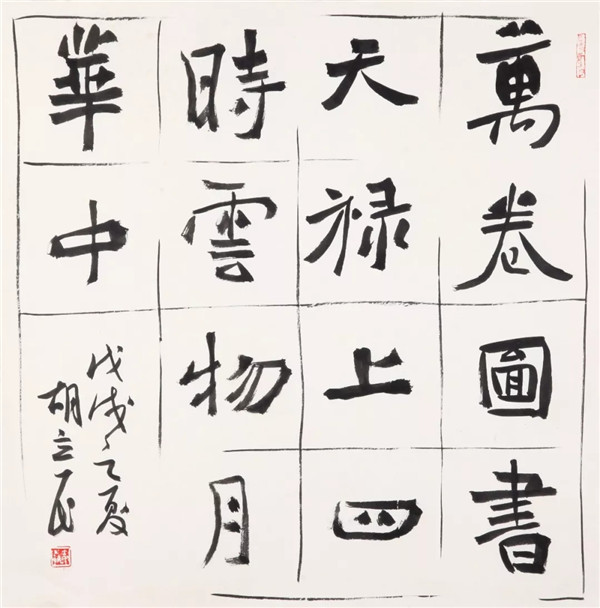 萬卷圖書
天禄上四
時雲物月
華中
戊戌之夏
胡立民